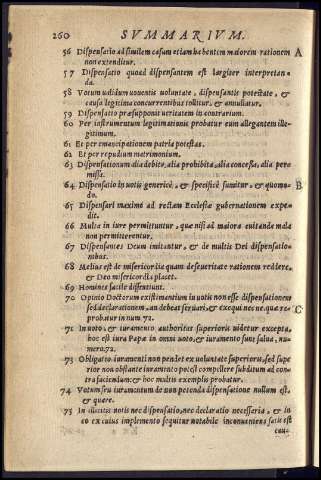 260 SVMMARIVM.
56 Dispensatio ad similem casum etiam habentem maiorem rationem A
non extenditur.
57 Dispensatio quoad dispensantem est largiter interpretan-
da.
58 Votum validum vouentis voluntate, dispensantis potestate, &
causa legitima concurrentibus tollitur, & annullatur.
59 Dispensatio præsupponit veritatem in contrarium.
60 Per instrumentum legitimationis probatur eum allegantem ille-
gitimum.
61 Et per emancipationem patria potestas.
62 Et per repudium matrimonium.
63 Dispensationum alia debita, alia prohibita, alia concessa, alia permissa.
missa.
64 Dispensatio in votis genericè, & specificè sumitur, & quomo- B
do.
65 Dispensari maximè ad rectam Ecclesiæ gubernationem expe-
dit.
66 Multa in iure permittuntur, quæ nisi ad maiora euitanda mala
non permitterentur.
67 Dispensantes Deum imitantur, & de multis Dei dispensatio-
nibus.
68 Melius est de misericordia quam de seueritate rationem reddere,
& Deo misericordia placet.
69 Homines facile dissentiunt.
70 Opinio Doctorum existimantium in votis non esse dispensationem
sed declarationem, an debeat seruari, & ex equi nec ne. quæ re- C
probatur in num 72.
71 In voto, & iuramento authoritas superioris videtur excepta,
hoc est iura Papæ in omni voto, & iuramento sunt salua, nu-
mero. 72.
73 Obligatio iuramenti non pendet ex voluntate superioris, sed supe
rior non obstante iuramento potest compellere subditum ad con-
tra faciendum: & hoc multis exemplis probatur.
74 Votum seu iuramentum de non petenda dispensatione nullum est,
& quare.
75 In illicitis votis nec dispensatio, nec declaratio necessaria, & in
eo ex cuius implemento sequitur notabile inconueniens satis est
cau-